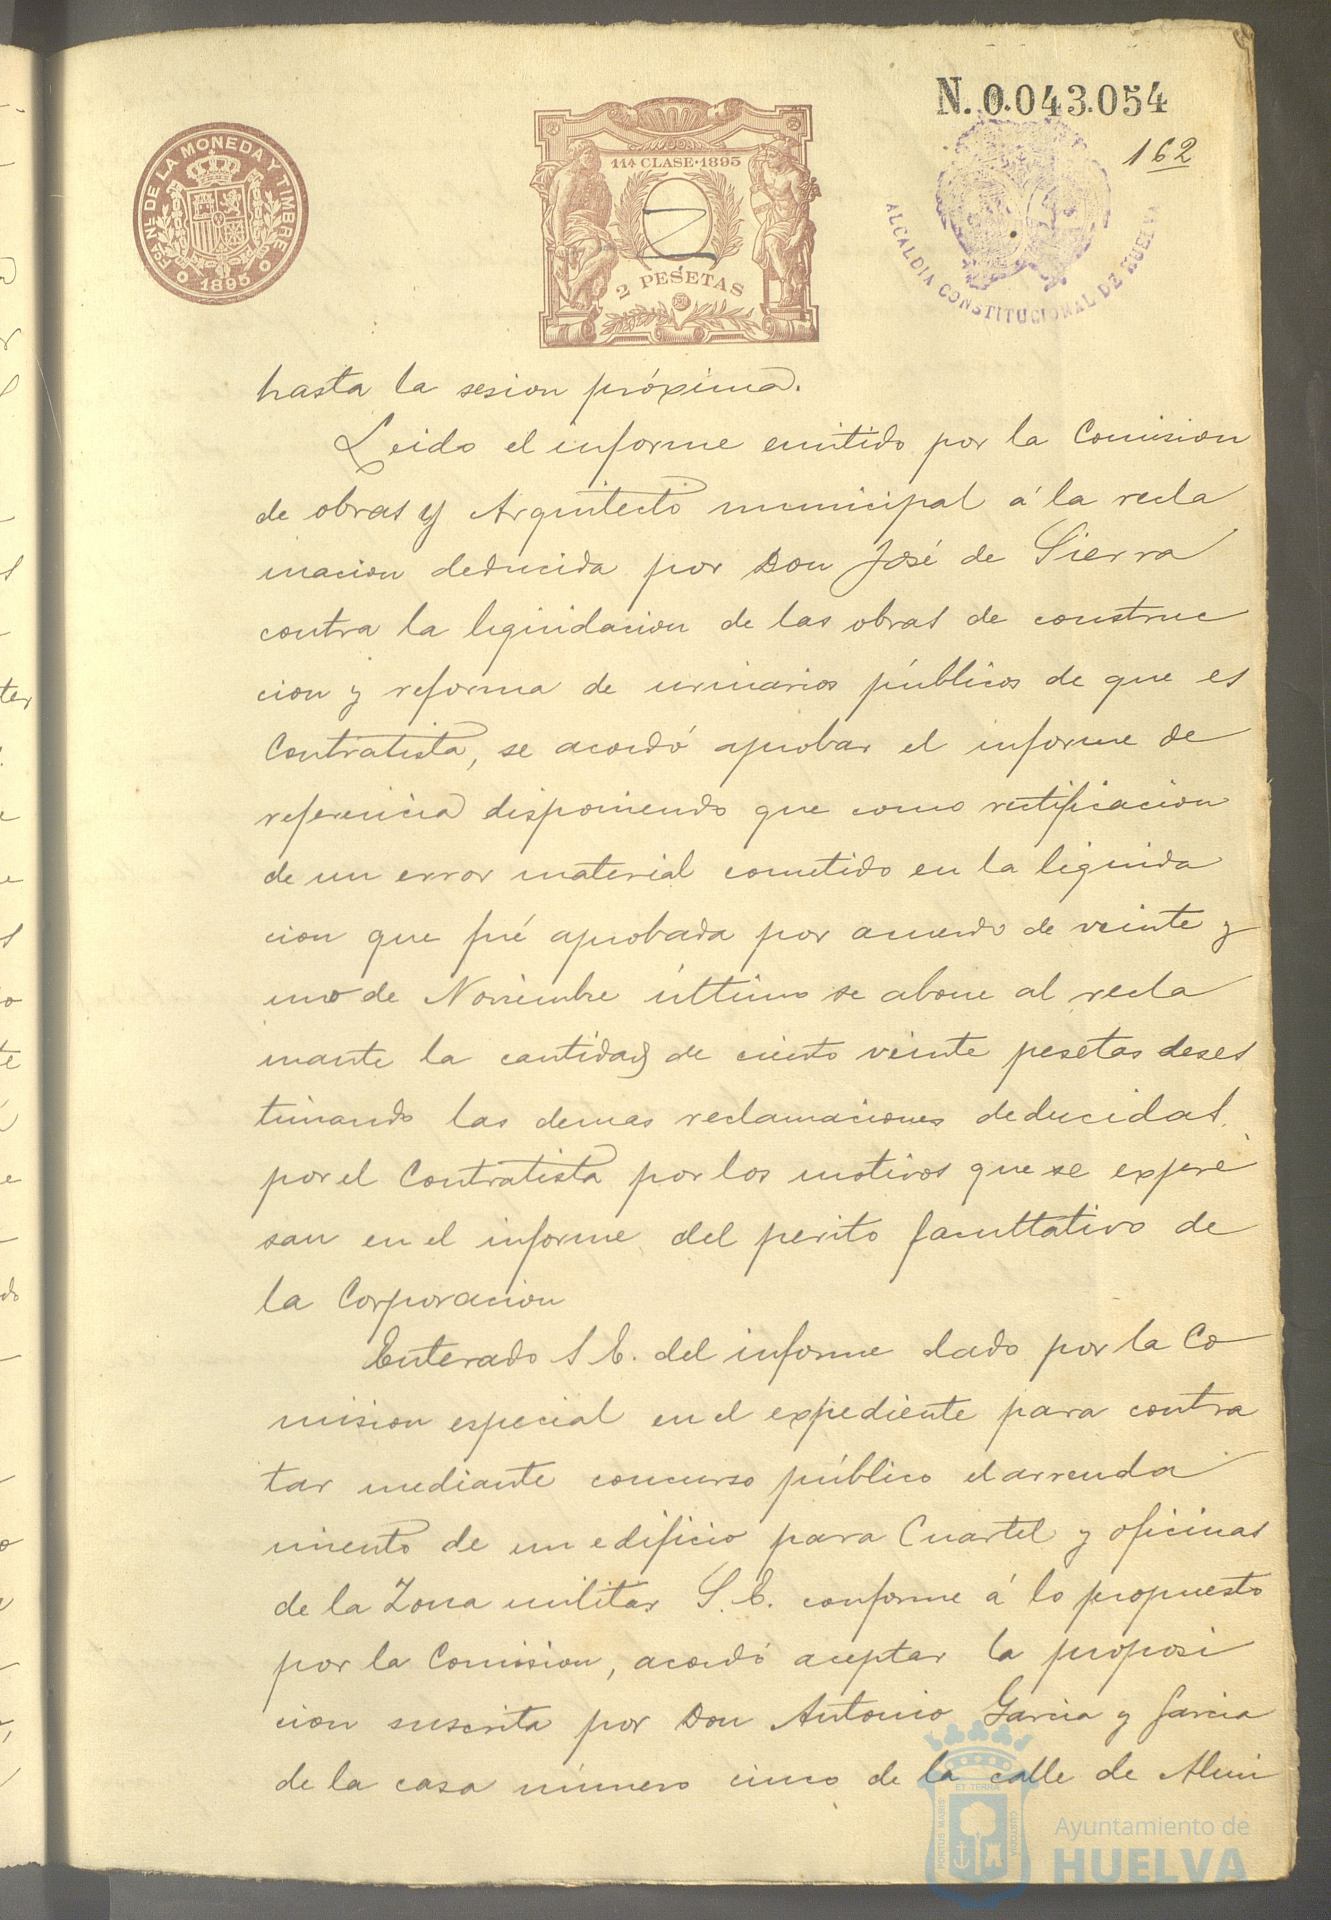 N. 0.043.054
162
FCA. NL. DE LA MONEDA Y TIMBRE
1895
11ª CLASE·1895
2 PESETAS
ALCALDIA CONSTITUCIONAL DE HUELVA
hasta la sesion próxima.
Leido el informe emitido por la Comision
de obras y Arquitecto municipal á la recla
macion deducida por Don José de Sierra
contra la liquidacion de las obras de construc
cion y reforma de urinarios públicos de que es
Contratista, se acordó aprobar el informe de
referencia disponiendo que como rectificacion
de un error material cometido en la liquida
cion que fué aprobada por acuerdo de veinte y
uno de Noviembre último se abone al recla
mante la cantidad de ciento veinte pesetas deses
timando las demas reclamaciones deducidas
por el Contratista por los motivos que se expre
san en el informe del perito facultativo de
la Corporacion
Enterado S E. del informe dado por la Co
mision especial en el expediente para contra
tar mediante concurso público el arrenda
miento de un edificio para Cuartel y oficinas
de la Zona militar S. E. conforme á lo propuesto
por la Comision, acordó aceptar la proposi
cion suscrita por Don Antonio Garcia y Garcia
de la casa número cinco de la calle de Almi
PORTUS MARIS ET TERRAE CUSTODIA
Ayuntamiento de
HUELVA